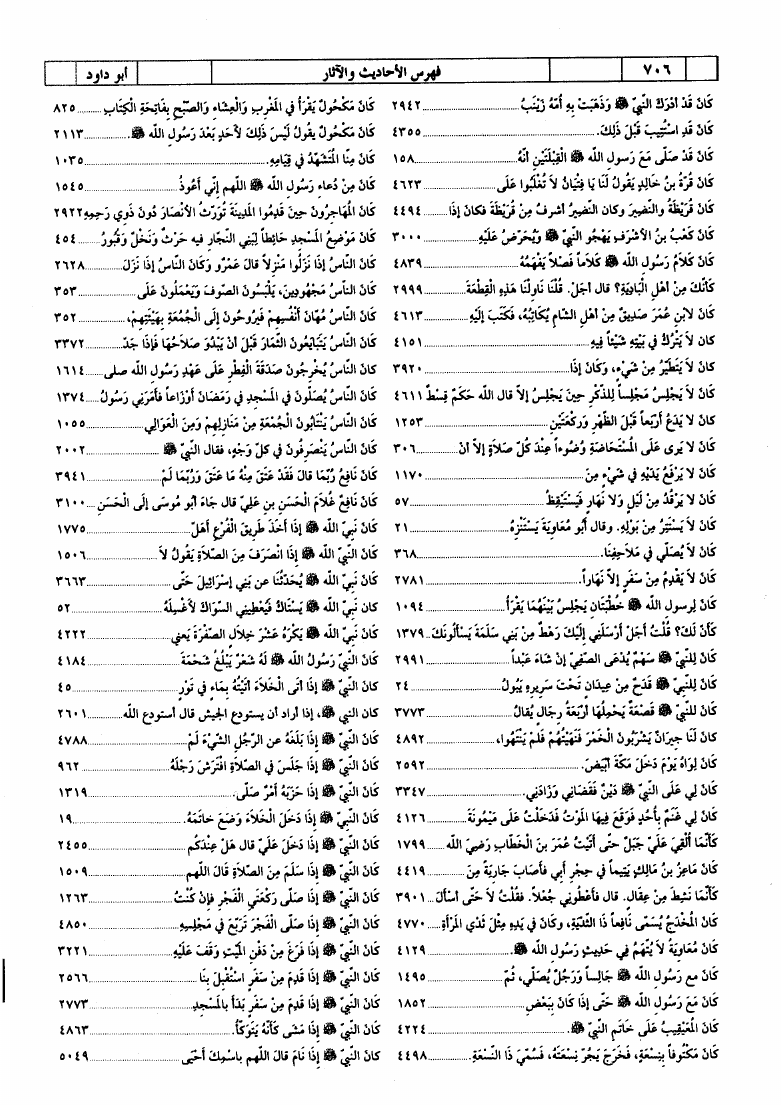 ٧٠٦ فهرس الأحاديث والآثار أبو داود
كَانَ قَدْ أدْرَكَ النَّبيَّ ﷺ وَذَهَبَتْ بِهِ أُمُّهُ زَيْنَبُ ٢٩٤٢
كَانَ قَدِ اسْتُتِيبَ قَبْلَ ذَلِكَ. ٤٣٥٥
كَانَ قَدْ صَلَّى مَعَ رَسولِ الله ﷺ الْقِبْلَتَيْنِ أنَّهُ ١٥٨
كَانَ قُرَّةُ بنُ خَالِدٍ يَقُولُ لَنَا يَا فِتْيَانُ لاَ تُغْلَبُوا عَلَى ٤٦٢٣
كَانَ قُرَيْظَةُ والنَّضِيرُ وكان النَّضِيرُ أشرفُ مِنْ قُرَيْظَةَ فكَانَ إذَا ٤٤٩٤
كَانَ كَعْبُ بنُ الأشْرَفِ يَهْجُو النَّبيَّ ﷺ وَيُحَرِّضُ عَلَيْهِ ٣٠٠٠
كَانَ كَلاَمُ رَسُولِ الله ﷺ كَلاَماً فَصْلاً يَفْهَمُهُ ٤٨٣٩
كَأنَّكَ مِنْ أهْلِ الْبَادِيَةِ؟ قال أجَلْ. قُلْنَا نَاوِلْنَا هَذِهِ الْقِطْعَةَ ٢٩٩٩
كَانَ لابنِ عُمَرَ صَدِيقٌ مِنْ أهْلِ الشَّامِ يُكَاتِبُهُ، فَكَتَبَ إلَيْهِ ٤٦١٣
كان لاَ يَتْرُكُ في بَيْتِهِ شَيْئاً فِيهِ ٤١٥١
كَانَ لاَ يَتَطَيَّرُ مِنْ شَيْءٍ، وَكَانَ إذَا ٣٩٢٠
كَانَ لاَ يَجْلِسُ مَجْلِساً لِلذِّكْرِ حِينَ يَجْلِسُ إلاَّ قال الله حَكَمٌ قِسْطٌ ٤٦١١
كَانَ لاَ يَدَعُ أرْبَعاً قَبْلَ الظُّهْرِ وَرَكْعَتَيْنِ ١٢٥٣
كَانَ لاَ يرى عَلَى المُسْتَحَاضَةِ وُضُوءاً عِنْدَ كُلِّ صَلاَةٍ إلاَّ أنْ ٣٠٦
كَانَ لاَ يَرْفَعُ يَدَيْهِ في شَيْءٍ مِنَ ١١٧٠
كَانَ لاَ يَرْقُدُ مِنْ لَيْلٍ وَلا نَهَارٍ فَيَسْتَيْقِظُ ٥٧
كَانَ لاَ يَسْتَتِرُ مِنْ بَوْلِهِ. وقال أَبُو مُعَاوِيَةَ يَسْتَنْزِهُ ٢١
كَانَ لاَ يُصَلِّي في مَلاَحِفِنَا. ٣٦٨
كَانَ لاَ يَقْدَمُ مِنْ سَفَرٍ إلاَّ نَهَاراً. ٢٧٨١
كَانَ لِرسولِ الله ﷺ خُطْبَتَانِ يَجْلِسُ بَيْنَهُمَا يَقْرَأُ ١٠٩٤
كَأنَّ لَكَ؟ قُلْتُ أجَلْ أرْسَلَنِي إلَيْكَ رَهْطٌ مِنْ بَنِي سَلَمَةَ يَسألُونَكَ ١٣٧٩
كَانَ لِلنَّبيِّ ﷺ سَهْمٌ يُدْعَى الصَّفِيَّ إنْ شَاءَ عَبْداً ٢٩٩١
كَانَ لِلنَّبيِّ ﷺ قَدَحٌ مِنْ عِيدَانٍ تَحْتَ سَرِيرِهِ يَبُولُ ٢٤
كَانَ لِلنبيِّ ﷺ قَصْعَةٌ يَحْمِلُهَا أرْبَعَةُ رِجَالٍ يُقَالُ ٣٧٧٣
كانَ لَنَا جِيرَانٌ يَشْرَبُونَ الْخَمْرَ فَنَهَيْتُهُمْ فَلَمْ يَنْتَهُوا، ٤٨٩٢
كَانَ لِوَاءُهُ يَوْمَ دَخَلَ مَكَّةَ أبْيَضَ. ٢٥٩٢
كَانَ لِي عَلَى النَّبيِّ ﷺ دَيْنٌ فَقَضَانِي وَزَادَنِي. ٣٣٤٧
كَانَ لِي غَنَمٌ بِأُحُدٍ فَوَقَعَ فِيهَا الْمَوْتُ فَدَخَلْتُ عَلَى مَيْمُونَةَ ٤١٢٦
كَأنَّمَا أُلْقِيَ عَلَيَّ جَبَلٌ حتَّى أتَيْتُ عُمَرَ بنَ الْخَطَّابِ رَضِيَ الله ١٧٩٩
كَانَ مَاعِزُ بنُ مَالِكٍ يَتِيماً في حِجْرِ أبي فأصَابَ جَارِيَةً مِنَ ٤٤١٩
كَأنَّمَا نَشِطَ مِنْ عِقَالٍ. قال فأعْطَوْنِي جُعْلاً. فقُلْتُ لاَ حَتَّى أسْألَ ٣٩٠١
كَانَ الْمُخْدَجُ يُسَمَّى نَافِعاً ذَا الثُّدَيَّةِ، وكَانَ في يَدِهِ مِثْلَ ثَدْيِ المَرْأةِ ٤٧٧٠
كَانَ مُعَاوِيَةُ لاَ يُتَّهَمُ في حَدِيثِ رَسُولِ الله ﷺ. ٤١٢٩
كَانَ مع رَسُولِ الله ﷺ جَالِساً وَرَجُلٌ يُصَلِّي، ثُمَّ ١٤٩٥
كَانَ مَعَ رَسُولِ الله ﷺ حَتَّى إذَا كَانَ بِبَعْضِ ١٨٥٢
كَانَ الْمُعَيْقِيبُ عَلَى خَاتَمِ النَّبيِّ ﷺ. ٤٢٢٤
كَانَ مَكْتُوفاً بِنِسْعَةٍ، فَخَرَجَ يَجُرُّ نِسْعَتَهُ، فَسُمِّيَ ذَا النِّسْعَةِ. ٤٤٩٨
كَانَ مَكْحُولٌ يَقْرَأُ في المَغْرِبِ وَالْعِشَاءِ وَالصُّبْحِ بِفَاتِحَةِ الْكِتَابِ ٨٢٥
كَانَ مَكْحُولٌ يقُولُ لَيْسَ ذَلِكَ لأحَدٍ بَعْدَ رَسُولِ الله ﷺ. ٢١١٣
كَانَ مِنَّا المُتَشَهِّدُ في قِيَامِهِ. ١٠٣٥
كَانَ مِنْ دُعَاءِ رَسُولِ الله ﷺ اللَّهم إنِّي أعُوذُ ١٥٤٥
كَانَ المُهَاجِرُونَ حِينَ قَدِمُوا المَدِينَةَ تُوَرِّثُ الأنْصَارَ دُونَ ذَوِي رَحِمِهِ ٢٩٢٢
كَانَ مَوْضِعُ المَسْجِدِ حَائِطاً لِبَنِي النَّجَّارِ فيه حَرْثٌ وَنَخْلٌ وَقُبُورُ ٤٥٤
كَانَ النَّاسُ إذَا نَزَلُوا مَنْزِلاً قالَ عَمْرٌو وَكَانَ النَّاسُ إذَا نَزَلَ ٢٦٢٨
كَانَ النَّاسُ مَجْهُودِينَ، يَلْبَسُونَ الصُّوفَ وَيَعْمَلُونَ عَلَى ٣٥٣
كَانَ النَّاسُ مُهَّانَ أنْفُسِهِمْ فَيَرُوحُونَ إلَى الْجُمُعَةِ بِهَيْئَتِهِمْ، ٣٥٢
كَانَ النَّاسُ يَتَبَايَعُونَ الثِّمَارَ قَبْلَ أنْ يَبْدُوَ صَلاَحُهَا فَإذَا جَدَّ ٣٣٧٢
كَانَ النَّاسُ يُخْرِجُونَ صَدَقَةَ الْفِطْرِ عَلَى عَهْدِ رَسُولِ الله صلى ١٦١٤
كَانَ النَّاسُ يُصَلُّونَ في المَسْجِدِ في رَمَضَانَ أوْزَاعاً فأمَرَنِي رَسُولُ ١٣٧٤
كَانَ النَّاسُ يَنْتَابُونَ الْجُمُعَةَ مِنْ مَنَازِلِهِمْ وَمِنَ الْعَوَالِي ١٠٥٥
كَانَ النَّاسُ يَنْصَرِفُونَ في كلِّ وَجْهٍ، فقال النَّبيُّ ﷺ ٢٠٠٢
كَانَ نَافِعٌ رُبَّمَا قالَ فَقَدْ عَتَقَ مِنْهُ مَا عَتَقَ وَرُبَّمَا لَمْ ٣٩٤١
كَانَ نَافِعٌ غُلاَمَ الْحَسَنِ بنِ عَلِيٍّ قال جَاءَ أبُو مُوسَى إلَى الْحَسَنِ ٣١٠٠
كَانَ نَبِيُّ الله ﷺ إذَا أخَذَ طَرِيقَ الْفُرْعِ أهَلَّ ١٧٧٥
كَانَ النَّبيُّ الله ﷺ إذَا انْصَرَفَ مِنَ الصَّلاَةِ يَقُولُ لاَ ١٥٠٦
كَانَ نَبيُّ الله ﷺ يُحَدِّثُنَا عن بَنِي إسْرَائِيلَ حَتَّى ٣٦٦٣
كَانَ نَبيُّ الله ﷺ يَسْتَاكُ فَيُعْطِينِي السِّوَاكَ لأغْسِلَهُ ٥٢
كَانَ نَبيُّ الله ﷺ يَكْرَهُ عَشْرَ خِلاَلٍ الصُّفْرَةَ يَعني ٤٢٢٢
كَانَ النَّبيُّ رَسُولُ الله ﷺ لَهُ شَعْرٌ يَبْلُغُ شَحْمَةَ ٤١٨٤
كَانَ النَّبيُّ ﷺ إذَا أتَى الْخَلاَءَ أتَيْتُهُ بِمَاءٍ في تَوْرٍ ٤٥
كان النبي ﷺ، إذا أراد أن يستودع الجيش قال أستودع الله ٢٦٠١
كَانَ النَّبيُّ ﷺ إذَا بَلَغَهُ عن الرَّجُلِ الشَّيْءُ لَمْ ٤٧٨٨
كَانَ النَّبيُّ ﷺ إذَا جَلَسَ في الصَّلاَةِ افْتَرَشَ رِجْلَهُ ٩٦٢
كَانَ النَّبيُّ ﷺ إذَا حَزَبَهُ أمْرٌ صَلَّى. ١٣١٩
كَانَ النَّبيُّ ﷺ إذَا دَخَلَ الْخَلاَءَ وَضَعَ خاتَمَهُ. ١٩
كَانَ النَّبيُّ ﷺ إذَا دَخَلَ عَلَيَّ قال هَلْ عِنْدَكُم ٢٤٥٥
كَانَ النَّبيُّ ﷺ إذَا سَلَّمَ مِنَ الصَّلاَةِ قَالَ اللَّهم ١٥٠٩
كَانَ النَّبيُّ ﷺ إذَا صَلَّى رَكْعَتَيِ الْفَجْرِ فَإنْ كُنْتُ ١٢٦٣
كَانَ النَّبيُّ ﷺ إذَا صَلَّى الْفَجْرَ تَرَبَّعَ في مَجْلِسِهِ ٤٨٥٠
كَانَ النَّبيُّ ﷺ إذَا فَرَغَ مِنْ دَفْنِ المَيِّتِ وَقَفَ عَلَيْهِ ٣٢٢١
كَانَ النَّبيُّ ﷺ إذَا قَدِمَ مِنْ سَفَرٍ اسْتُقْبِلَ بِنَا ٢٥٦٦
كَانَ النَّبيُّ ﷺ إذَا قَدِمَ مِنْ سَفَرٍ بَدَأ بالْمَسْجِدِ ٢٧٧٣
كَانَ النَّبيُّ ﷺ إذَا مَشَى كَأنَّهُ يَتَوَكَّأُ. ٤٨٦٣
كَانَ النَّبيُّ ﷺ إذَا نَامَ قالَ اللَّهم باسْمِكَ أحْيَى ٥٠٤٩